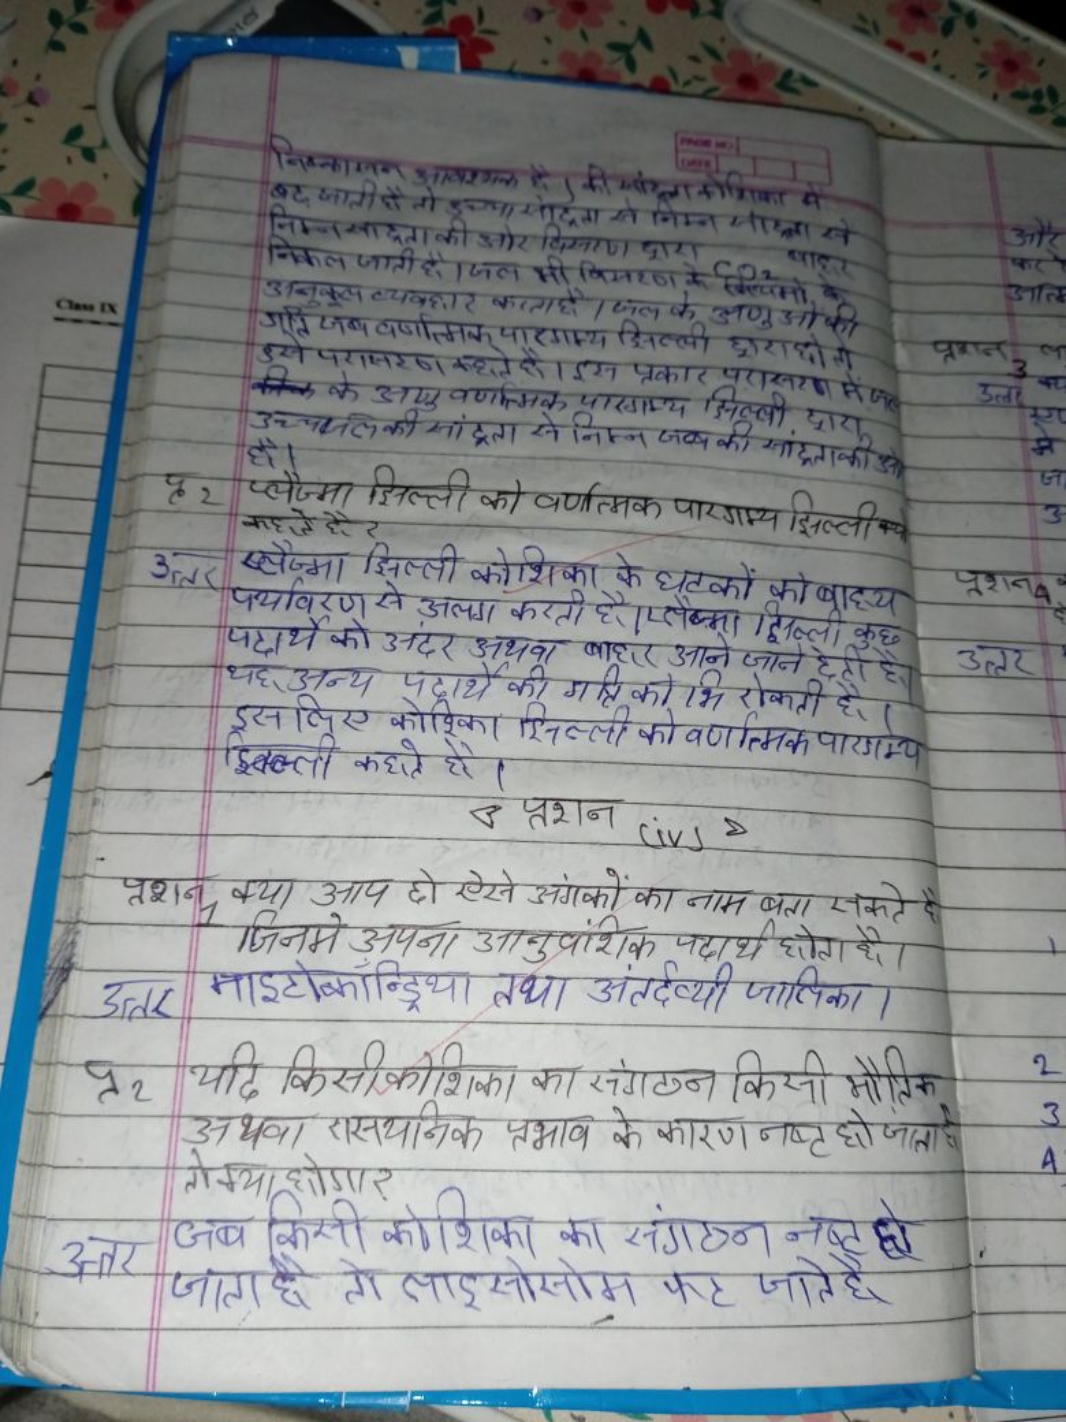 PAGE NO:
DATE
Class IX
निष्कासन आवश्यक है। की सांद्रता कोशिका में
बढ़ जाती है तो उच्च सांद्रता से निम्न सांद्रता से
निम्न सांद्रता की ओर विसरण द्वारा बाहर
निकल जाती है। जल भी विसरण के नियमों के
CO2
अनुकूल व्यवहार करता है। जल के अणुओं की
गति जब वर्णात्मक पारगम्य झिल्ली द्वारा हो तो
इसे परासरण कहते है। इस प्रकार परासरण में जल
के अणु वर्णात्मक पारगम्य झिल्ली द्वारा
उच्च जल की सांद्रता से निम्न जल की सांद्रता की ओर
है।
प्र2 प्लैज्मा झिल्ली को वर्णात्मक पारगम्य झिल्ली क्यों
कहते है?
उत्तर प्लैज्मा झिल्ली कोशिका के घटकों को बाह्य
पर्यावरण से अलग करती है। प्लैज्मा झिल्ली कुछ
पदार्थे को अंदर अथवा बाहर आने जाने देती है।
यह अन्य पदार्थे की गति को भि रोकती है।
इसलिए कोशिका झिल्ली को वर्णात्मक पारगम्य
झिल्ली कहते है।
प्रशन (iv)
प्रशन1 क्या आप दो ऐसे अंगकों का नाम बता सकते है
जिनमे अपना आनुवंशिक पदार्थ होता है।
उत्तर माइटोकॉन्ड्रिया तथा अंतर्द्रव्यी जालिका।
प्र2 यदि किसी कोशिका का संगठन किसी भौतिक
अथवा रासयनिक प्रभाव के कारण नष्ट हो जाता है
तो क्या होगा?
उत्तर जब किसी कोशिका का संगठन नष्ट हो
जाता है तो लाइसोसोम फट जाते है
और
प्रशन 3
उत्तर
प्रशन4
उत्तर
1
2
3
4